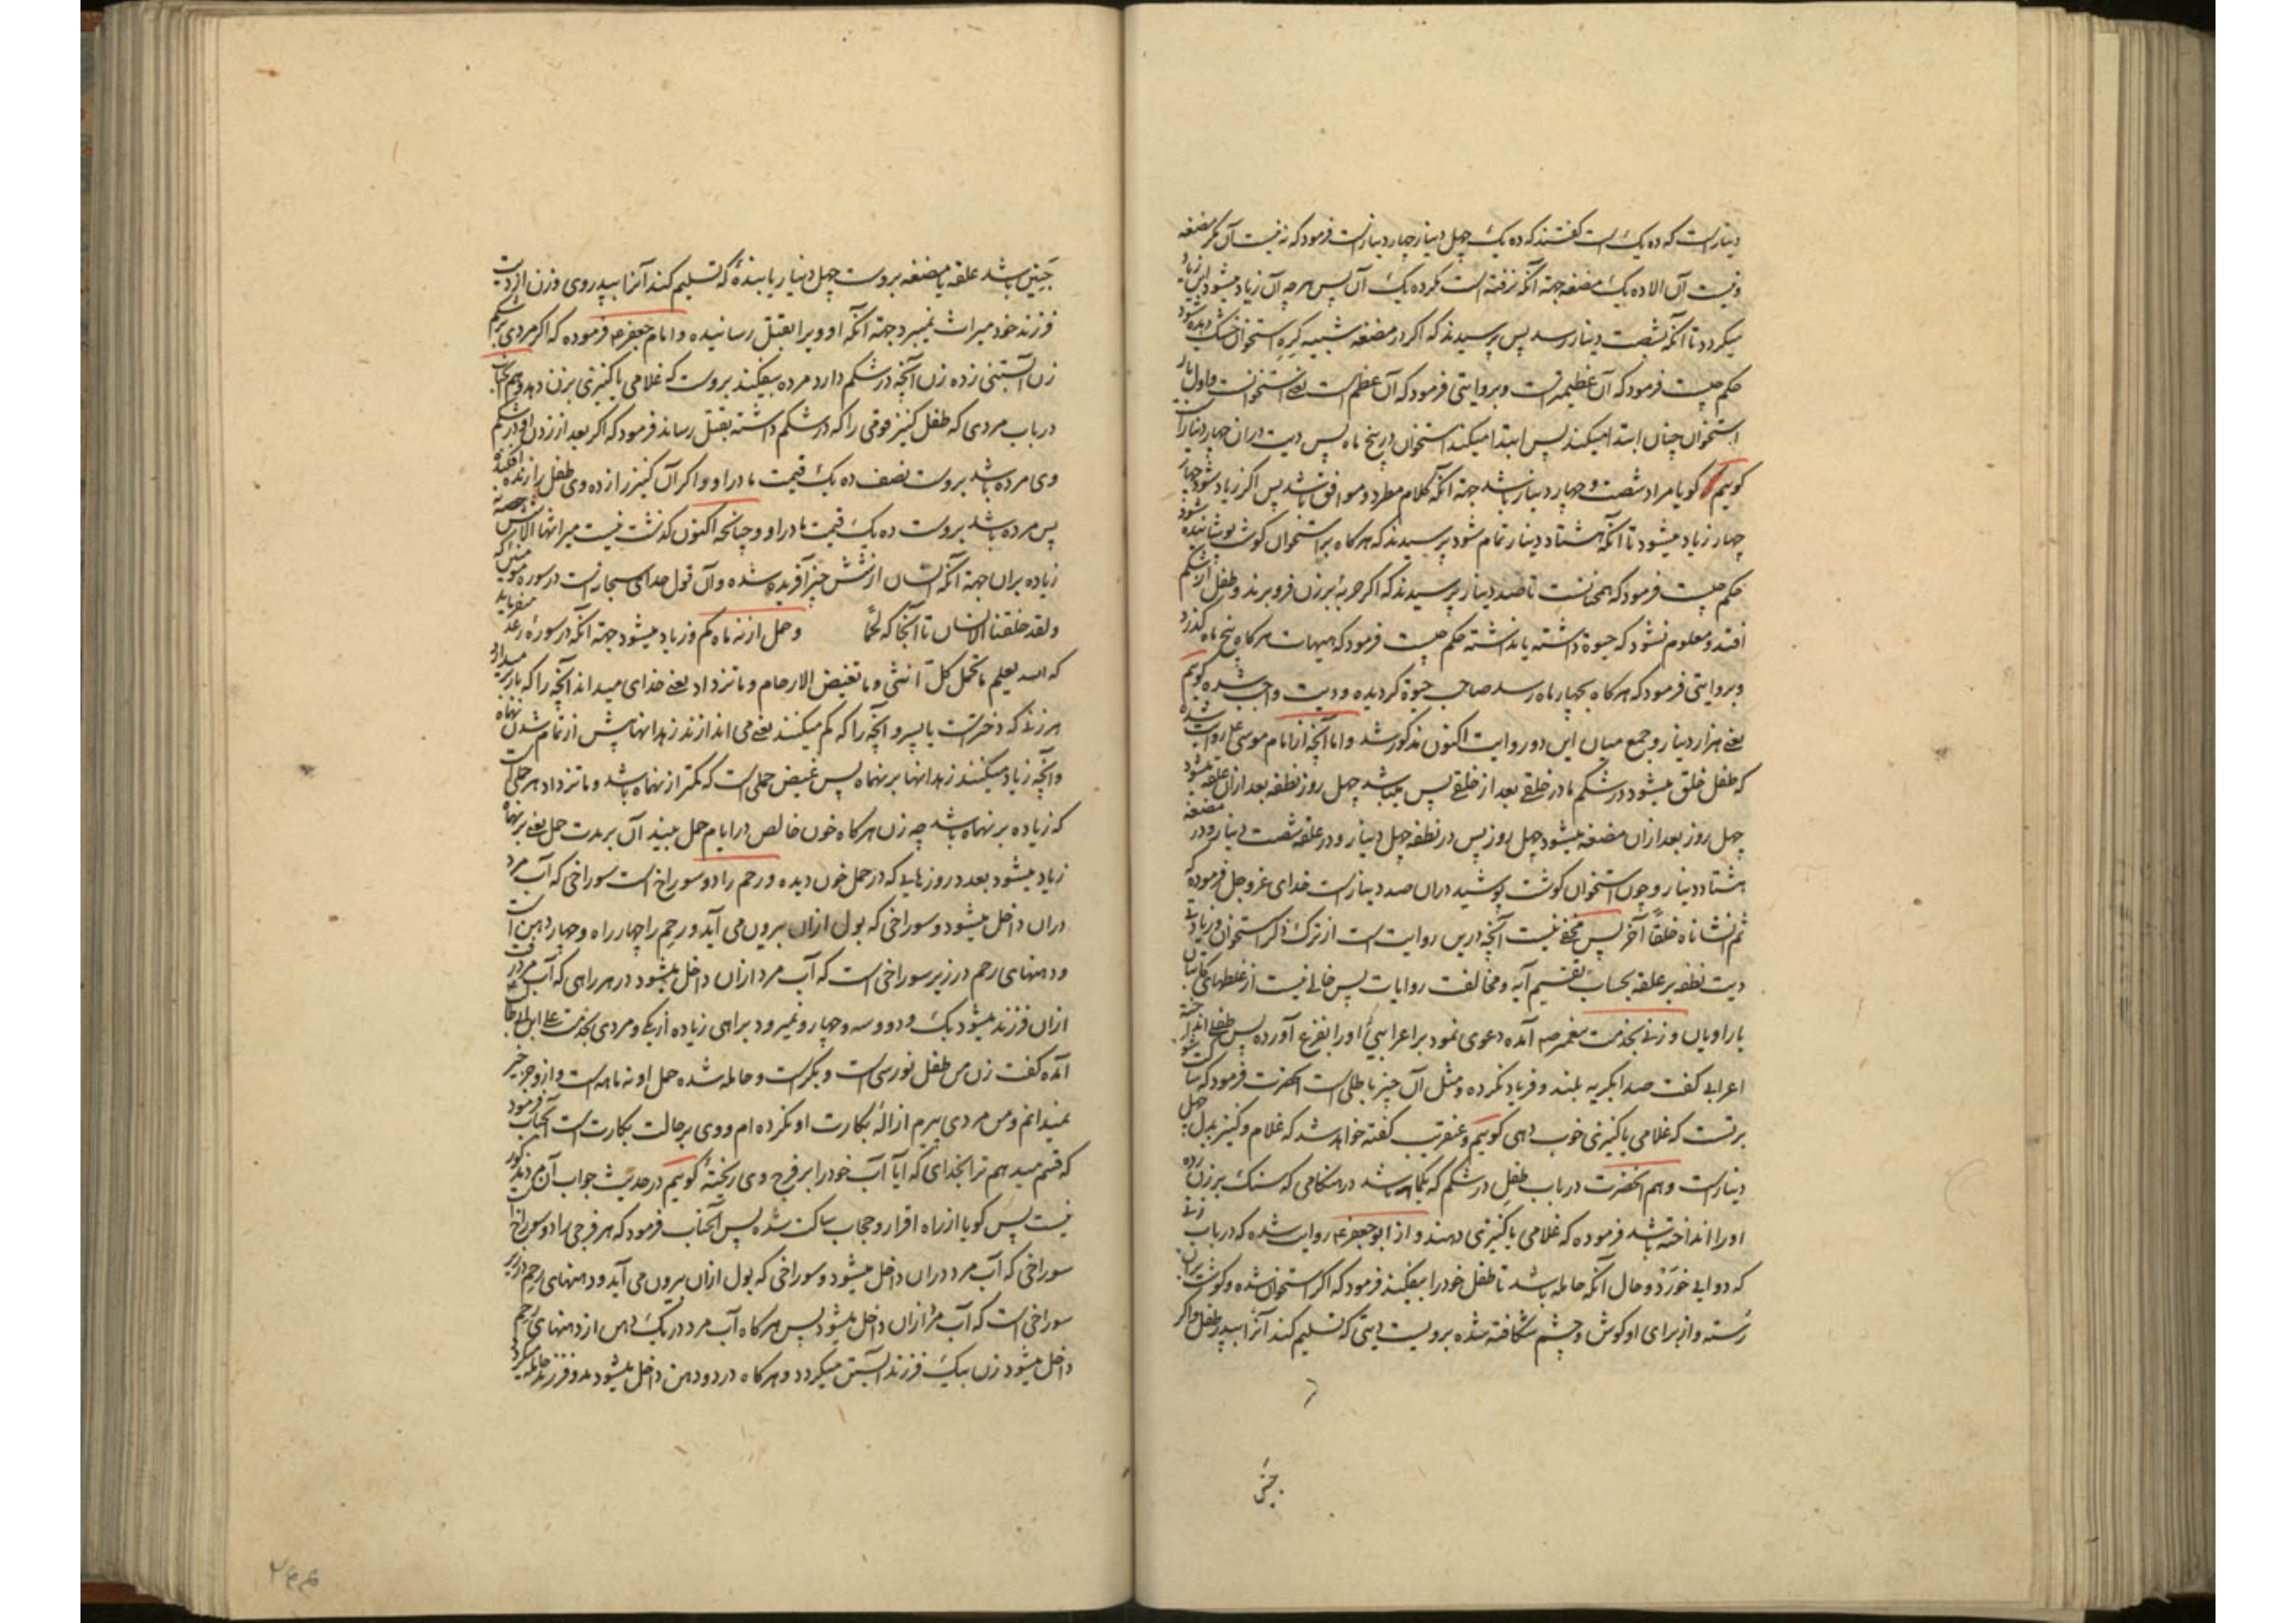 دینار است که ده یک است گفتند که ده یک چهل دینار چهار دینار است فرمود که نه نیست آن مگر مضغه
و نیست آن الا ده یک مضغه جهة آنکه نرفته است مگر ده یک آن پس هر چه آن زیاد میشود این زیاد
میکردد تا آنکه بشصت دینار رسد پس پرسیدند که اگر در مضغه شبیه گره استخوان خشک دیده شود
حکم چیست فرمود که آن عظیمه است و بروایتی فرمود که آن عظم است یعنی استخوانست و اول بار
استخوان چنان ابتدا میکند پس ابتدا میکند استخوان در پنج ماه پس دیت در ان چهار دینار است
کوییم کویا مراد شصت و چهار دینار باشد جهة آنکه کلام مطرد و موافق باشد پس اگر زیاد شود چهار
چهار زیاد میشود تا آنکه هشتاد دینار تمام شود پرسیدند که هرکاه بر استخوان کوشت پوشانیده شود
حکم چیست فرمود که همچنانست تا صد دینار پرسیدند که اگر حربهٔ بر زن فرو برند و طفل از شکم
افتد و معلوم نشود که حیوة داشته یا نداشته حکم چیست فرمود که هیهات هرکاه پنج ماه گذرد
و بروایتی فرمود که هرکاه بچهار ماه رسد صاحب حیوة کردیده و دیت واجب شده کوییم
یعنی هزار دینار و جمع میان این دو روایت اکنون مذکور شد و اما آنچه از امام موسی ع روایت شده
که طفل خلق میشود در شکم مادر خلقی بعد از خلقی پس میباشد چهل روز نطفه بعد ازان علقه میشود
چهل روز بعد ازان مضغه میشود چهل روز پس در نطفه چهل دینار و در علقه شصت دینار و در مضغه
هشتاد دینار و چون استخوان کوشت پوشید دران صد دینار است خدای عز و جل فرموده که
ثم انشاناه خلقاً آخر پس مخفی نیست آنچه درین روایت است از ترک ذکر استخوان و زیادتی
دیت نطفه بر علقه بحساب تقسیم آیه و مخالفت روایات پس خالی نیست از غلطهای کاتبان
یا راویان و زنی بخدمت پیغمبر ص آمده دعوی نمود بر اعرابیئ او را بفزع آورده پس طفلی انداخته
اعرابی گفت صدا بگریه بلند و فریاد نکرده و مثل آن چیز باطلی است آنحضرت فرمود که ساکت شو
بر تست که غلامی یا کنیزی خوب دهی کوییم و عنقریب گفته خواهد شد که غلام و کنیز بدل چهل
دینار است و هم آنحضرت در باب طفل در شکم که یکماهه باشد در هنکامی که سنک بر زن زده
او را انداخته باشد فرموده که غلامی یا کنیزی دهند و از ابو جعفر ع روایت شده که در باب زنی
که دوایی خورد و حال آنکه حامله باشد تا طفل خود را بیفکند فرمود که اگر استخوان شده و کوشت بران
رسته و از برای او کوش و چشم شکافته شده برویست دیتی که تسلیم کند آنرا بپدر طفل و اگر
جنین
جنین باشد علقه یا مضغه بروست چهل دینار یا بندهٔ که تسلیم کند آنرا بپدر وی و زن از دیت
فرزند خود میراث نمیبرد جهة آنکه او ویرا بقتل رسانیده و امام جعفر ع فرموده که اگر مردی بر شکم
زن آبستنی زده زن آنچه در شکم دارد مرده بیفکند بروست که غلامی یا کنیزی بزن دهد و هم آنجناب
در باب مردی که طفل کنیز قومی را که در شکم داشته بقتل رساند فرمود که اگر بعد از زدن او در شکم
وی مرده باشد بروست نصف ده یک قیمت مادر او و اگر آن کنیز را زده وی طفل را زنده افکنده
پس مرده باشد بروست ده یک قیمت مادر او و چنانچه اکنون کذشت نیست میراثها الا بر شش حصه نه
زیاده بران جهة آنکه انسان از شش چیز آفریده شده و آن قول خدای سبحانست در سوره مؤمنین که
ولقد خلقنا الانسان تا آنجا که لحماً و حمل از نه ماه کم و زیاد میشود جهة آنکه در سورهٔ رعد میفرماید
که الله یعلم ما تحمل کل انثی وما تغیض الارحام وما تزداد یعنی خدای میداند آنچه را که بار میدارد
هر زنی که دختر است یا پسر و آنچه را که کم میکنند یعنی می اندازند زهدانها پیش از تمام شدن نه ماه
و آنچه زیاد میکنند زهدانها بر نهماه پس غیض حملی است که کمتر از نهماه باشد و ما تزداد هر حملی است
که زیاده بر نهماه باشد چه زن هرکاه خون خالص در ایام حمل بیند آن بر مدت حمل یعنی بر نهماه
زیاد میشود بعدد روزهایی که در حمل خون دیده و رحم را دو سوراخ است سوراخی که آب مرد
دران داخل میشود و سوراخی که بول ازان بیرون می آید و رحم را چهار راه و چهار دهن است
و دهنهای رحم در زیر سوراخی است که آب مرد ازان داخل میشود در هر راهی که آب مرد رفت
ازان فرزند میشود یک و دو و سه و چهار و نمیرود براهی زیاده از یک و مردی بخدمت علی ابن ابیطالب
آمده گفت زن من طفل نورسی است و بکر است و حامله شده حمل او نه ماهه است و ازو جز خیر
نمیدانم و من مردی پیرم ازالهٔ بکارت او نکرده ام و وی بر حالت بکارت است آنجناب فرمود
که قسم میدهم ترا بخدای که آیا آب خود را بر فرج وی ریختهٔ کوییم در حدیث جواب آن مرد مذکور
نیست پس کویا از راه اقرار و حجاب ساکت شده پس آنجناب فرمود که هر فرجی را دو سوراخ است
سوراخی که آب مرد دران داخل میشود و سوراخی که بول ازان بیرون می آید و دهنهای رحم در زیر
سوراخی است که آب مرد ازان داخل میشود پس هرکاه آب مرد در یک دهن از دهنهای رحم
داخل میشود زن بیک فرزند آبستن میکردد و هرکاه در دو دهن داخل میشود بدو فرزند حامله میکردد
۲۶۶